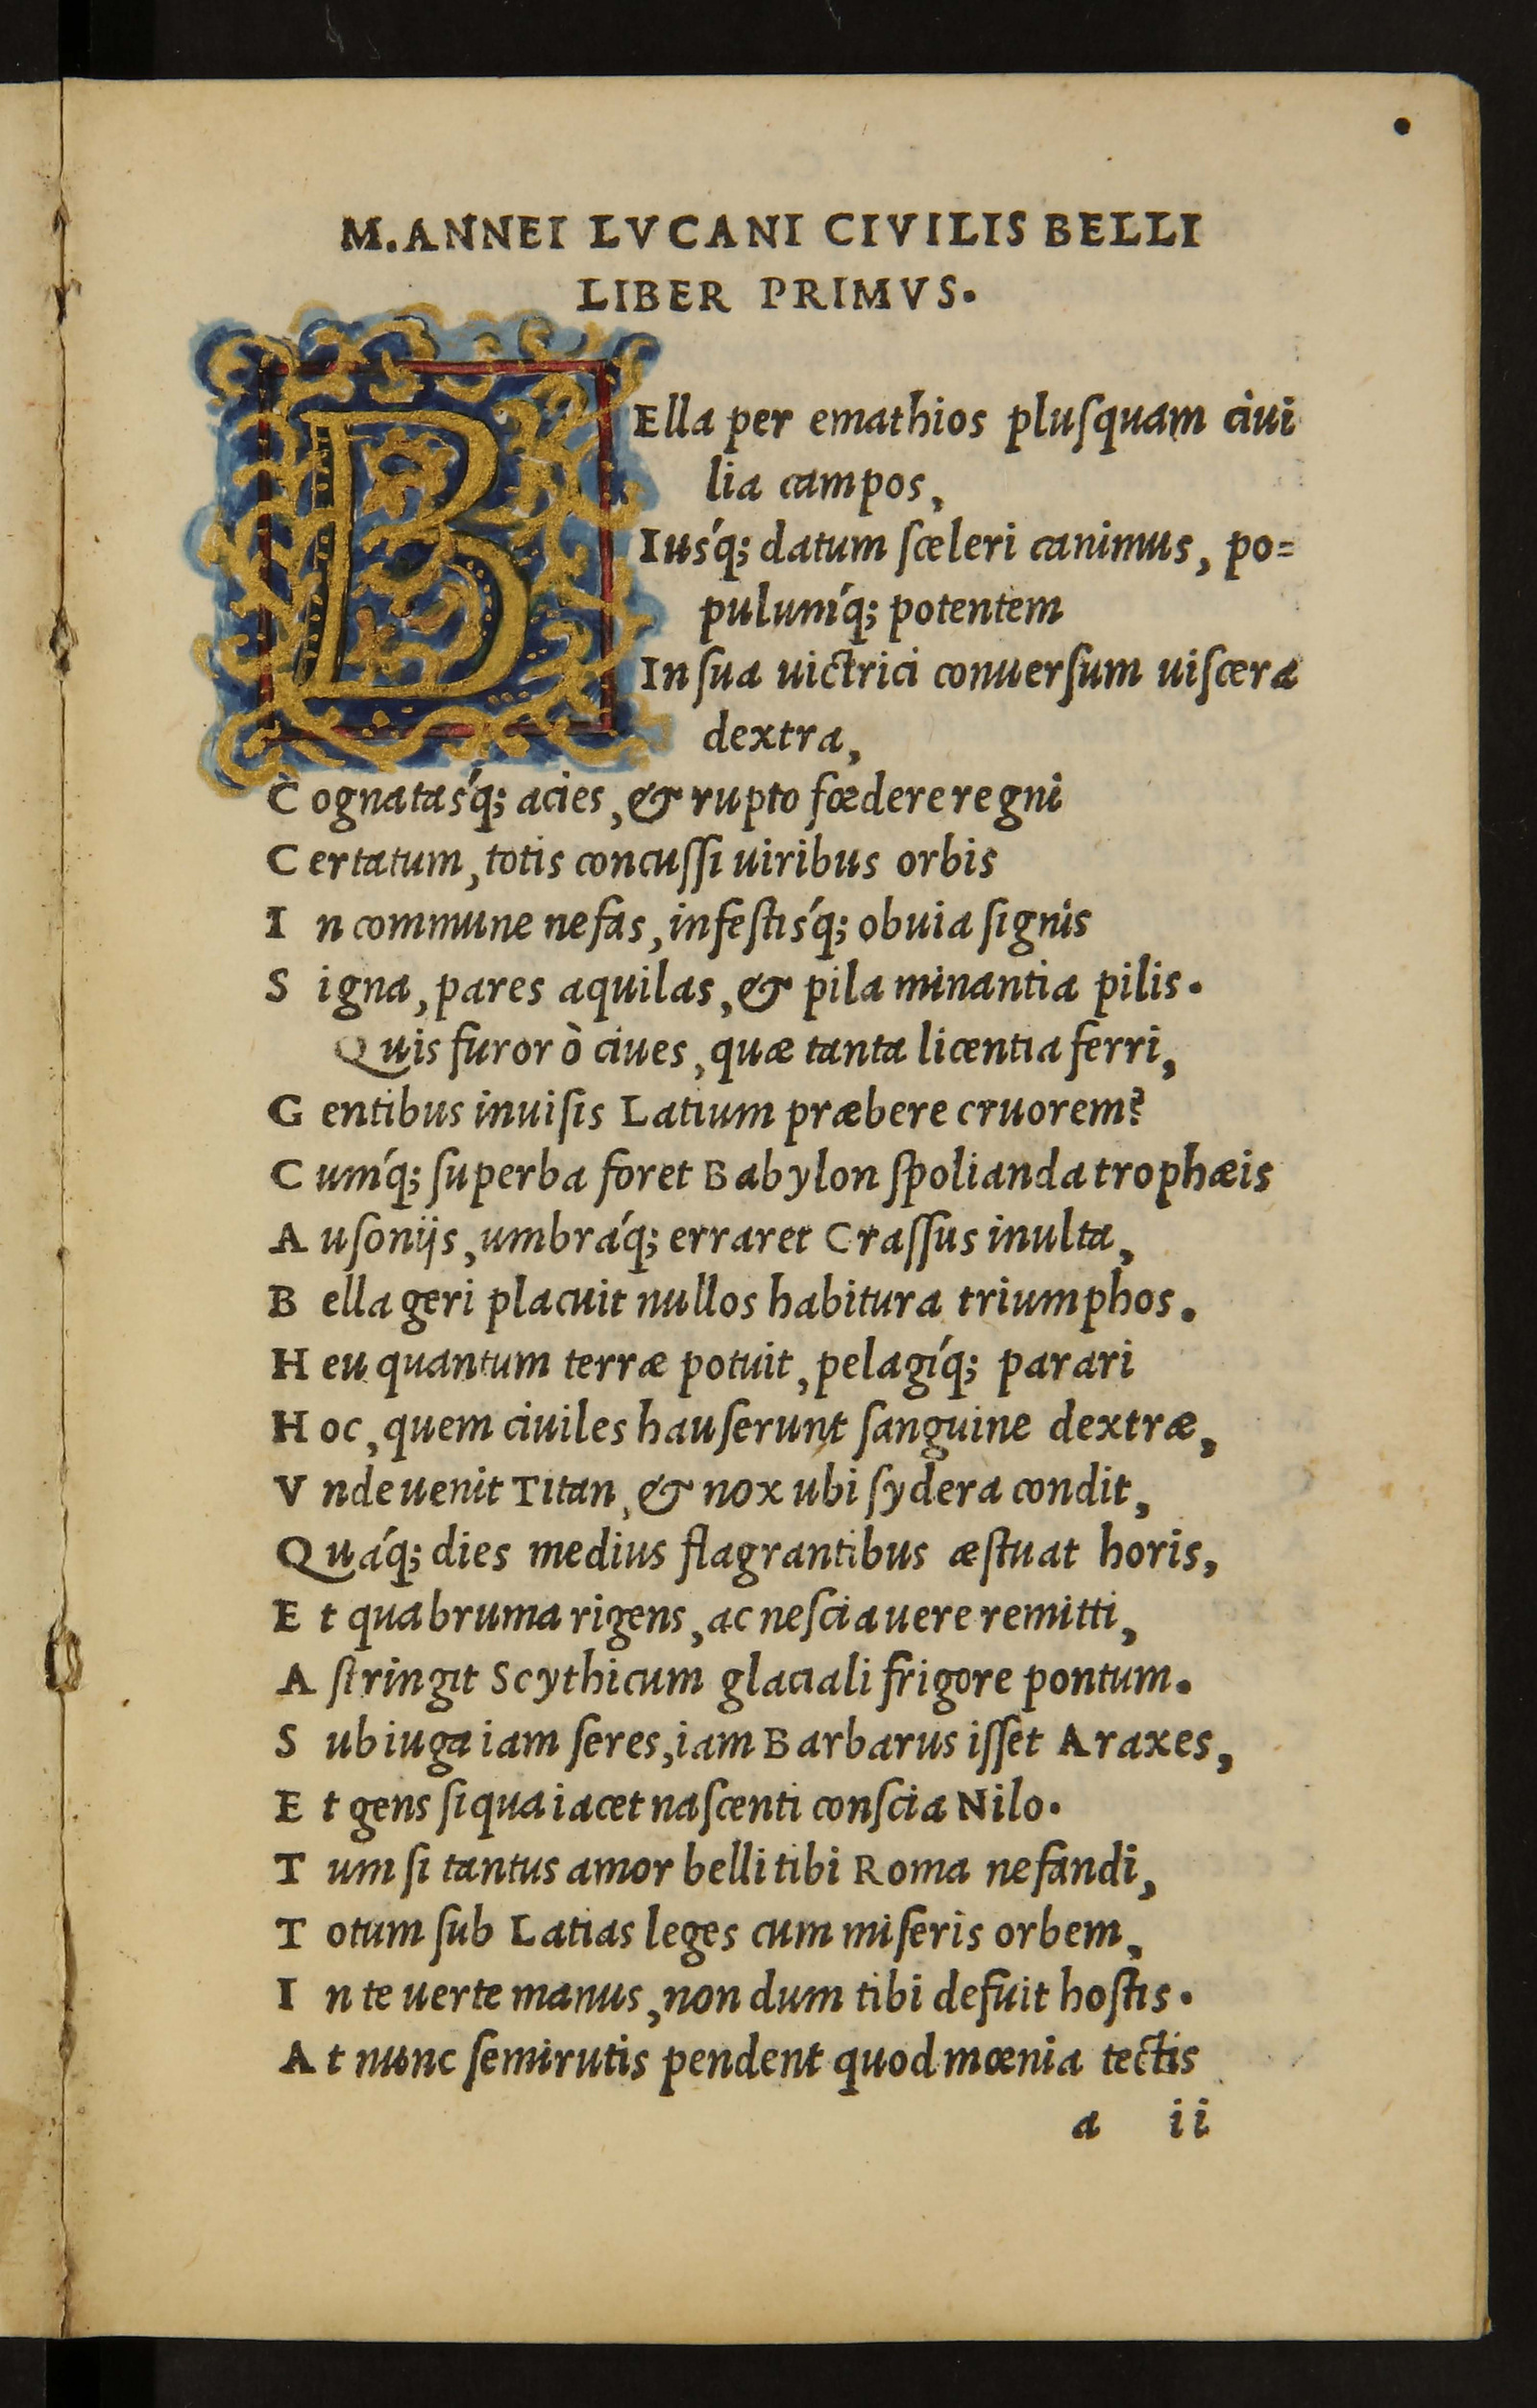 M.ANNEI LVCANI CIVILIS BELLI
LIBER PRIMVS.
BElla per emathios pluſquam ciui
lia campos,
Iuſq́; datum ſceleri canimus, po=
pulumq́; potentem
In ſua uictrici conuerſum uiſcera
dextra,
C ognatasq́; acies, & rupto fœdere regni
C ertatum, totis concuſſi uiribus orbis
I n commune nefas, infeſtisq́; obuia ſignis
S igna, pares aquilas, & pila minantia pilis.
Quis furor ò ciues, quæ tanta licentia ferri,
G entibus inuiſis Latium præbere cruorem?
C umq́; ſuperba foret Babylon ſpolianda trophæis
A uſonijs, umbráq; erraret Craſſus inulta,
B ella geri placuit nullos habitura triumphos.
H eu quantum terræ potuit, pelagíq; parari
H oc, quem ciuiles hauſerunt ſanguine dextræ,
V nde uenit Titan, & nox ubi ſydera condit,
Quáq; dies medius flagrantibus æſtuat horis,
E t qua bruma rigens, ac neſcia uere remitti,
A ſtringit Scythicum glaciali frigore pontum.
S ub iuga iam ſeres, iam Barbarus iſſet Araxes,
E t gens ſiqua iacet naſcenti conſcia Nilo.
T um ſi tantus amor belli tibi Roma nefandi,
T otum ſub Latias leges cum miſeris orbem,
I n te uerte manus, non dum tibi defuit hoſtis.
A t nunc ſemirutis pendent quod mœnia tectis
a ii